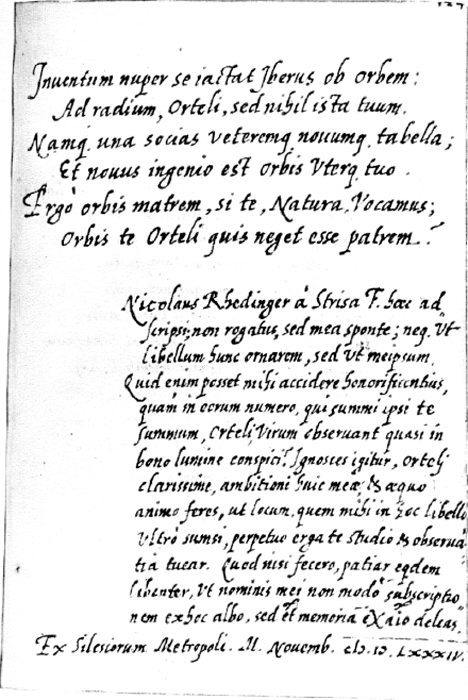 127
Inuentum nuper se iactat Iberus ob orbem:
Ad radium, Orteli, sed nihil ista tuum.
Namq. una socias veteremq. nouumq. tabella;
Et nouus ingenio est orbis vterq. tuo.
Ergò orbis matrem, si te, Natura, vocamus;
Orbis te Orteli quis neget esse patrem.?
Nicolaus Rhedinger à Strisa F. hæc ad
scripsi; non rogatus, sed mea sponte; neq. vt
libellum hunc ornarem, sed vt meipsum.
Quid enim posset mihi accidere honorificentius,
quàm in eorum numero, qui summi ipsi te
summum, Orteli, virum obseruant quasi in
bono lumine conspici? Ignosces igitur, Ortelj
clarissime, ambitioni huic meæ; & æquo
animo feres, ut locum, quem mihi in hoc libello
vltrò sumsi, perpetuo erga te studio & obserua
tia tuear. Quod nisi fecero, patiar eqdem
libenter, vt nominis mei non modò subscriptio
nem ex hoc albo, sed et memoriã eX aĩo deleas.
Ex Silesiorum Metropoli. II. Nouemb. cIɔ. Iɔ. LXXXIV.